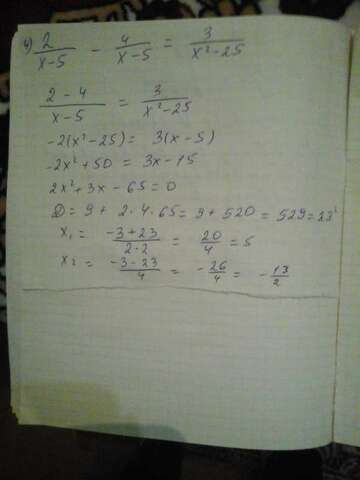 4) 2/(x-5) - 4/(x-5) = 3/(x²-25)
(2-4)/(x-5) = 3/(x²-25)
-2(x²-25) = 3(x-5)
-2x²+50 = 3x-15
2x²+3x-65=0
D = 9 + 2·4·65 = 9+520 = 529=23²
x₁ = (-3+23)/(2·2) = 20/4 = 5
x₂ = (-3-23)/4 = -26/4 = -13/2